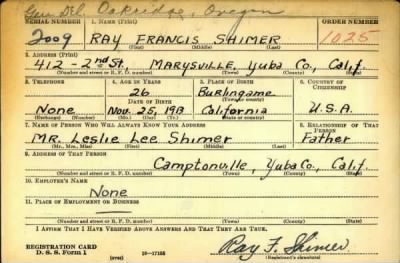 Gen Del. Oakridge, Oregon
SERIAL NUMBER 1. NAME (Print) ORDER NUMBER
2009 RAY FRANCIS SHIMER 1025
(First) (Middle) (Last)
2. ADDRESS (Print)
412 - 2nd St. MARYSVILLE, Yuba Co., Calif.
(Number and street or R. F. D. number) (Town) (County) (State)
3. TELEPHONE 4. AGE IN YEARS 5. PLACE OF BIRTH 6. COUNTRY OF CITIZENSHIP
26 Burlingame
DATE OF BIRTH (Town or county)
None Nov. 25, 1913 California U.S.A.
(Exchange) (Number) (Mo.) (Day) (Yr.) (State or country)
7. NAME OF PERSON WHO WILL ALWAYS KNOW YOUR ADDRESS 8. RELATIONSHIP OF THAT PERSON
Mr. Leslie Lee Shimer Father
(Mr., Mrs., Miss) (First) (Middle) (Last)
9. ADDRESS OF THAT PERSON
Camptonville, Yuba Co., Calif.
(Number and street or R. F. D. number) (Town) (County) (State)
10. EMPLOYER'S NAME
None
11. PLACE OF EMPLOYMENT OR BUSINESS
(Number and street or R. F. D. number) (Town) (County) (State)
I AFFIRM THAT I HAVE VERIFIED ABOVE ANSWERS AND THAT THEY ARE TRUE.
REGISTRATION CARD
D. S. S. Form 1 16-17105 Ray F. Shimer
(Registrant's signature)